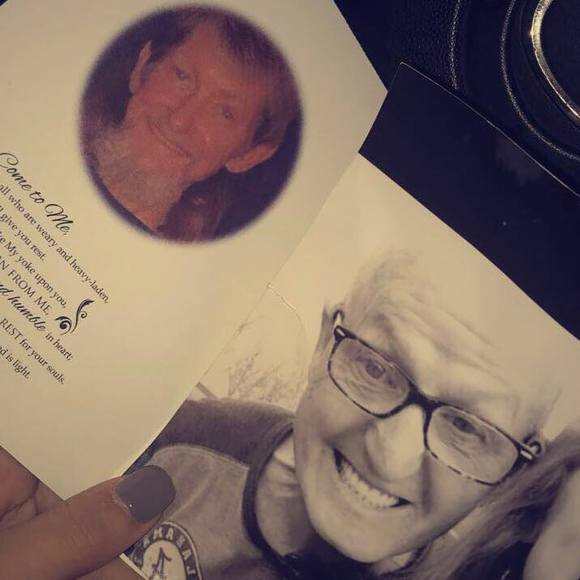 Come to Me,
all who are weary and heavy-laden,
give you rest.
My yoke upon you,
FROM ME,
humble in heart;
REST for your souls.
is light.
A